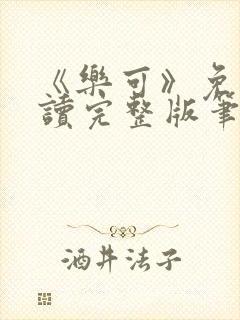 《樂可》免
讀完整版筆
酒井法子